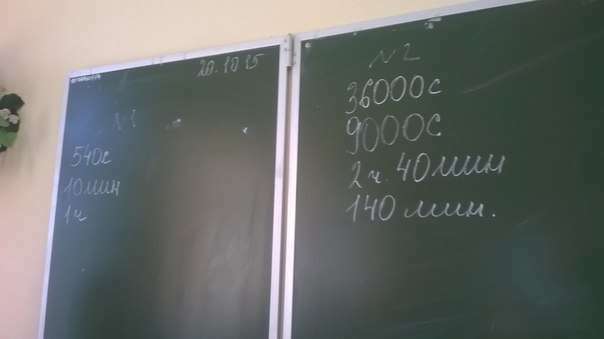 20.10 15
N1
540с
10мин
1ч
N2
36000с
9000с
2 ч. 40мин
140 мин.